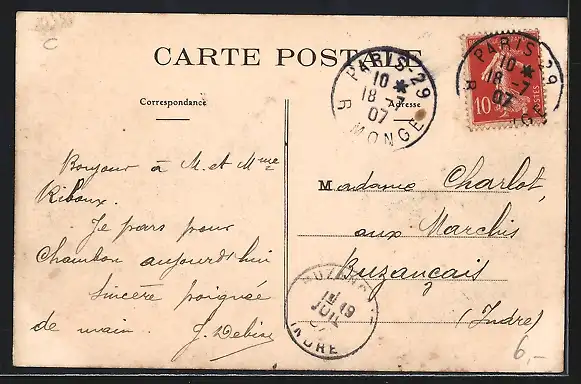 C
CARTE POSTALE
PARIS-29
10 *
18 -7
07
R. MONGE
PARIS-29
10 *
18 -7
07
R
10
POSTES
Correspondance
Adresse
Bonjour à M. et Mme
Riboux.
Je pars pour
Chambon aujourd'hui
Sincère poignée
de main.
Madame Charlot,
aux Marchis
Buzançais
(Indre)
19
JUIL
INDRE
6,-